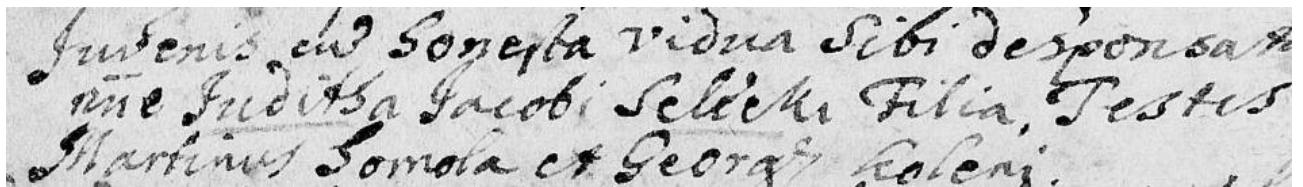 Juvenis cu honesta vidua Sibi desponsat
nne Juditha Jacobi Selecki Filia, Testes
Martinus Homola et Georg Koleni.